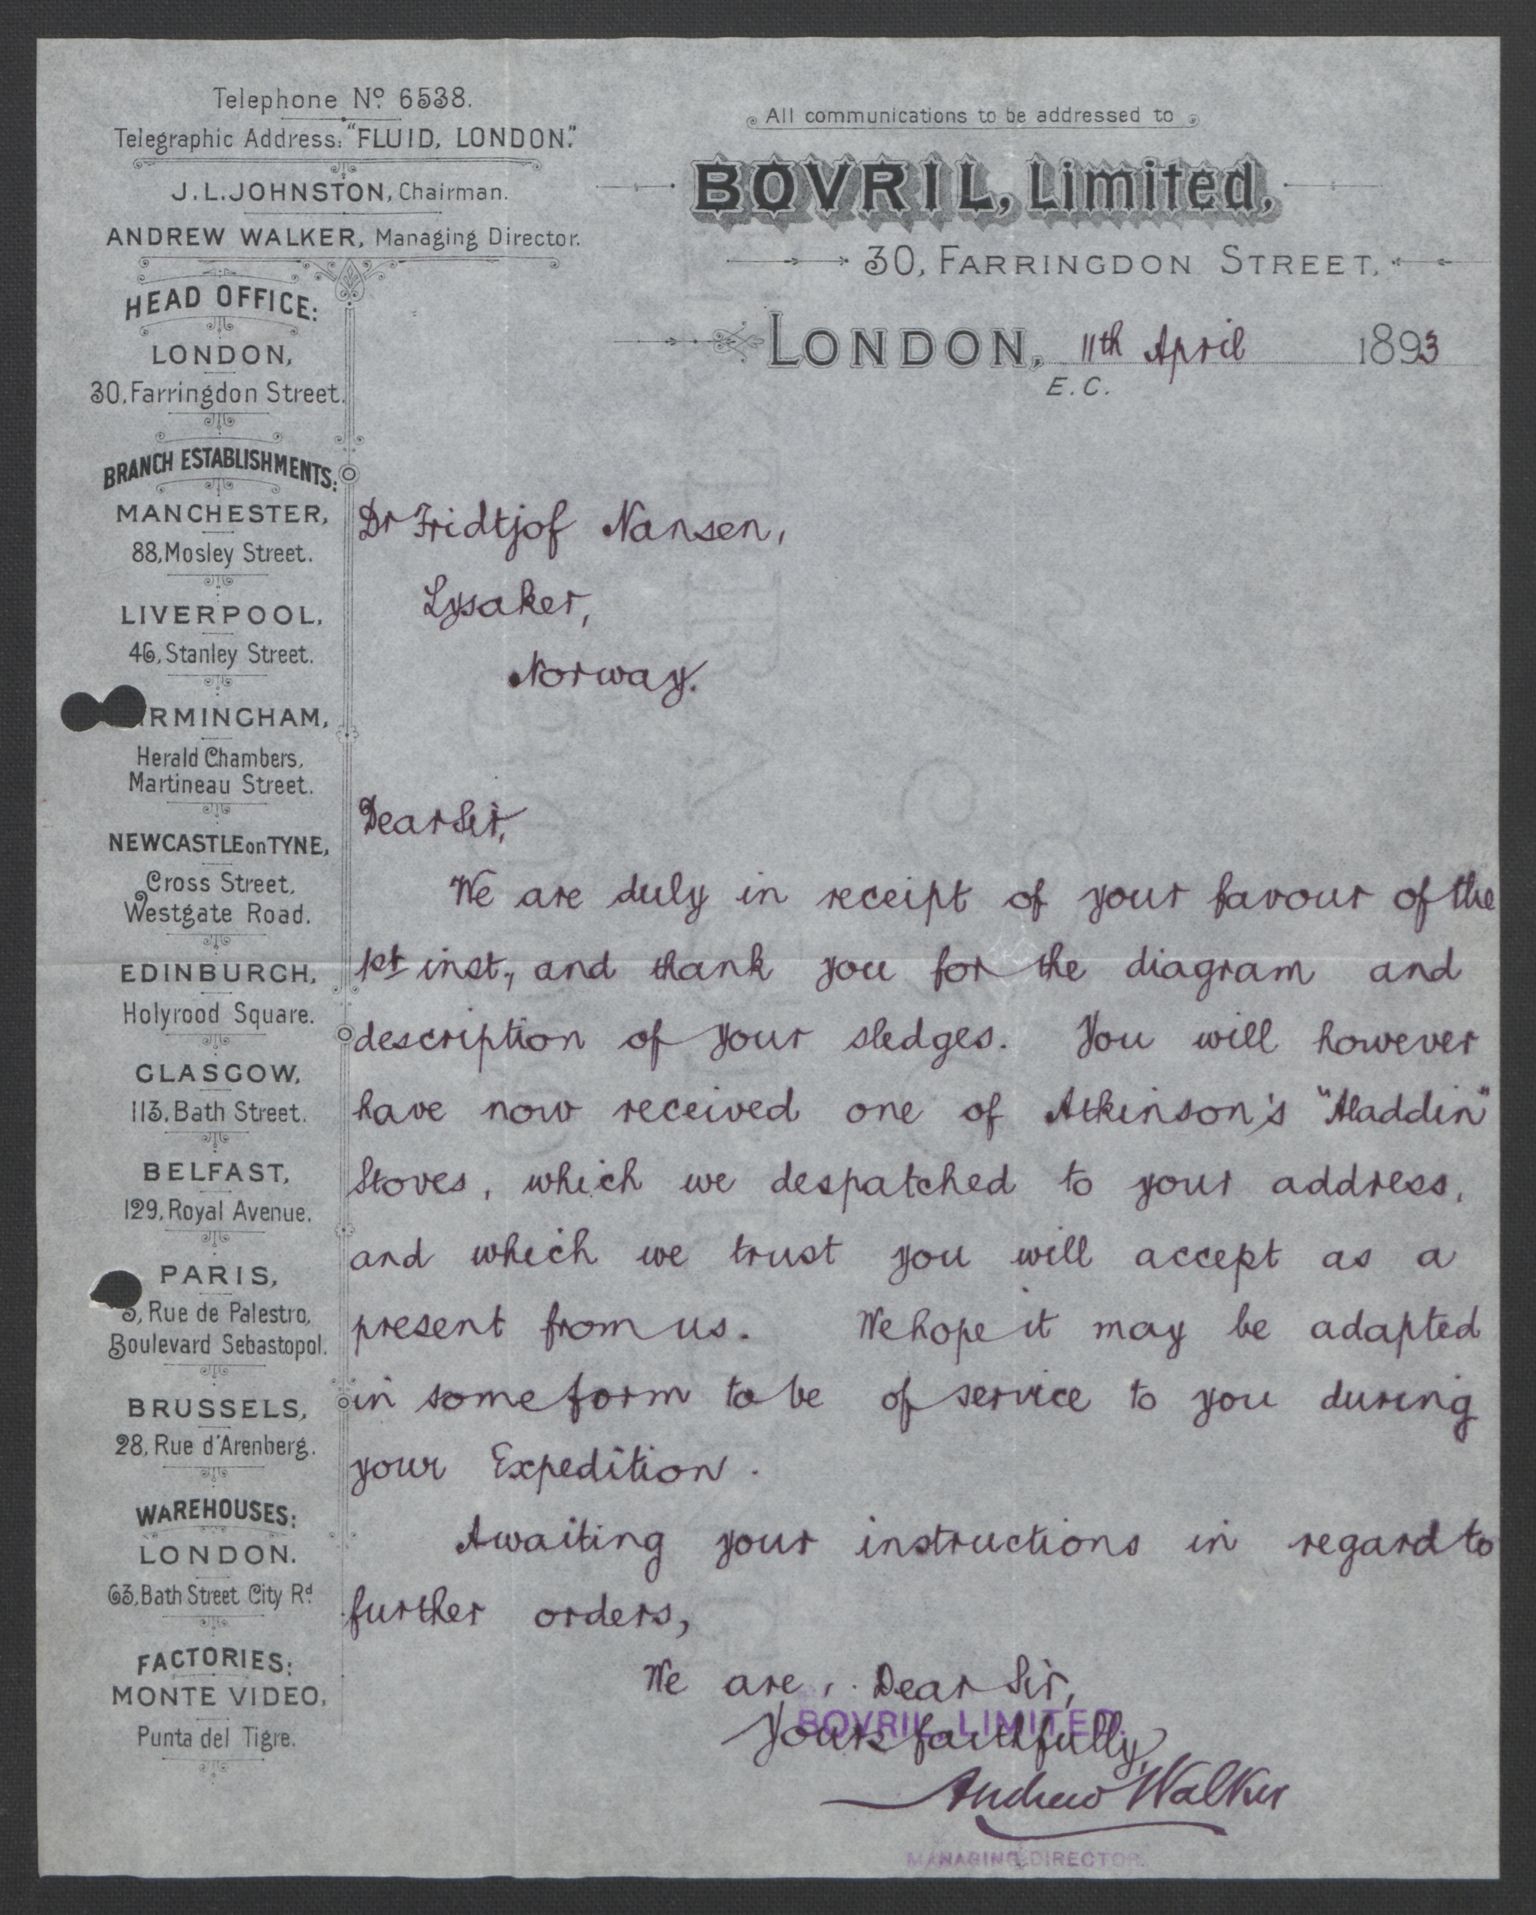 Telephone No. 6538.
Telegraphic Address: "FLUID, LONDON."
J. L. JOHNSTON, Chairman.
ANDREW WALKER, Managing Director.
HEAD OFFICE:
LONDON,
30, Farringdon Street.
BRANCH ESTABLISHMENTS:
MANCHESTER,
88, Mosley Street.
LIVERPOOL,
46, Stanley Street.
RMINGHAM,
Herald Chambers,
Martineau Street.
NEWCASTLE on TYNE,
Cross Street,
Westgate Road.
EDINBURGH,
Holyrood Square.
GLASGOW,
113, Bath Street.
BELFAST,
129, Royal Avenue.
PARIS,
Rue de Palestro,
Boulevard Sebastopol.
BRUSSELS,
28, Rue d'Arenberg.
WAREHOUSES:
LONDON.
63, Bath Street City Rd.
FACTORIES:
MONTE VIDEO,
Punta del Tigre.
All communications to be addressed to
BOVRIL, Limited,
30, FARRINGDON STREET,
LONDON, 11th April 1893
E.C.
Dr Fridtjof Nansen,
Lysaker,
Norway.
Dear Sir,
We are duly in receipt of your favour of the
1st inst., and thank you for the diagram and
description of your sledges. You will however
have now received one of Atkinson's "Aladdin"
Stoves, which we despatched to your address,
and which we trust you will accept as a
present from us. We hope it may be adapted
in some form to be of service to you during
your Expedition.
Awaiting your instructions in regard to
further orders,
We are, Dear Sir,
BOVRIL, LIMITED.
Yours faithfully,
Andrew Walker
MANAGING DIRECTOR.